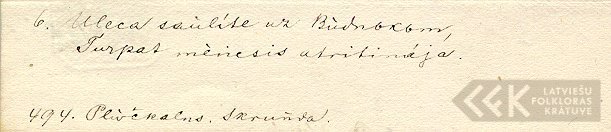 6. Uleca saulīte uz Būdnokom,
Turpat mēnesis atritināja.
494. Plivčkalns. Skruñda.
LATVIEŠU
FOLKLORAS
KRĀTUVE